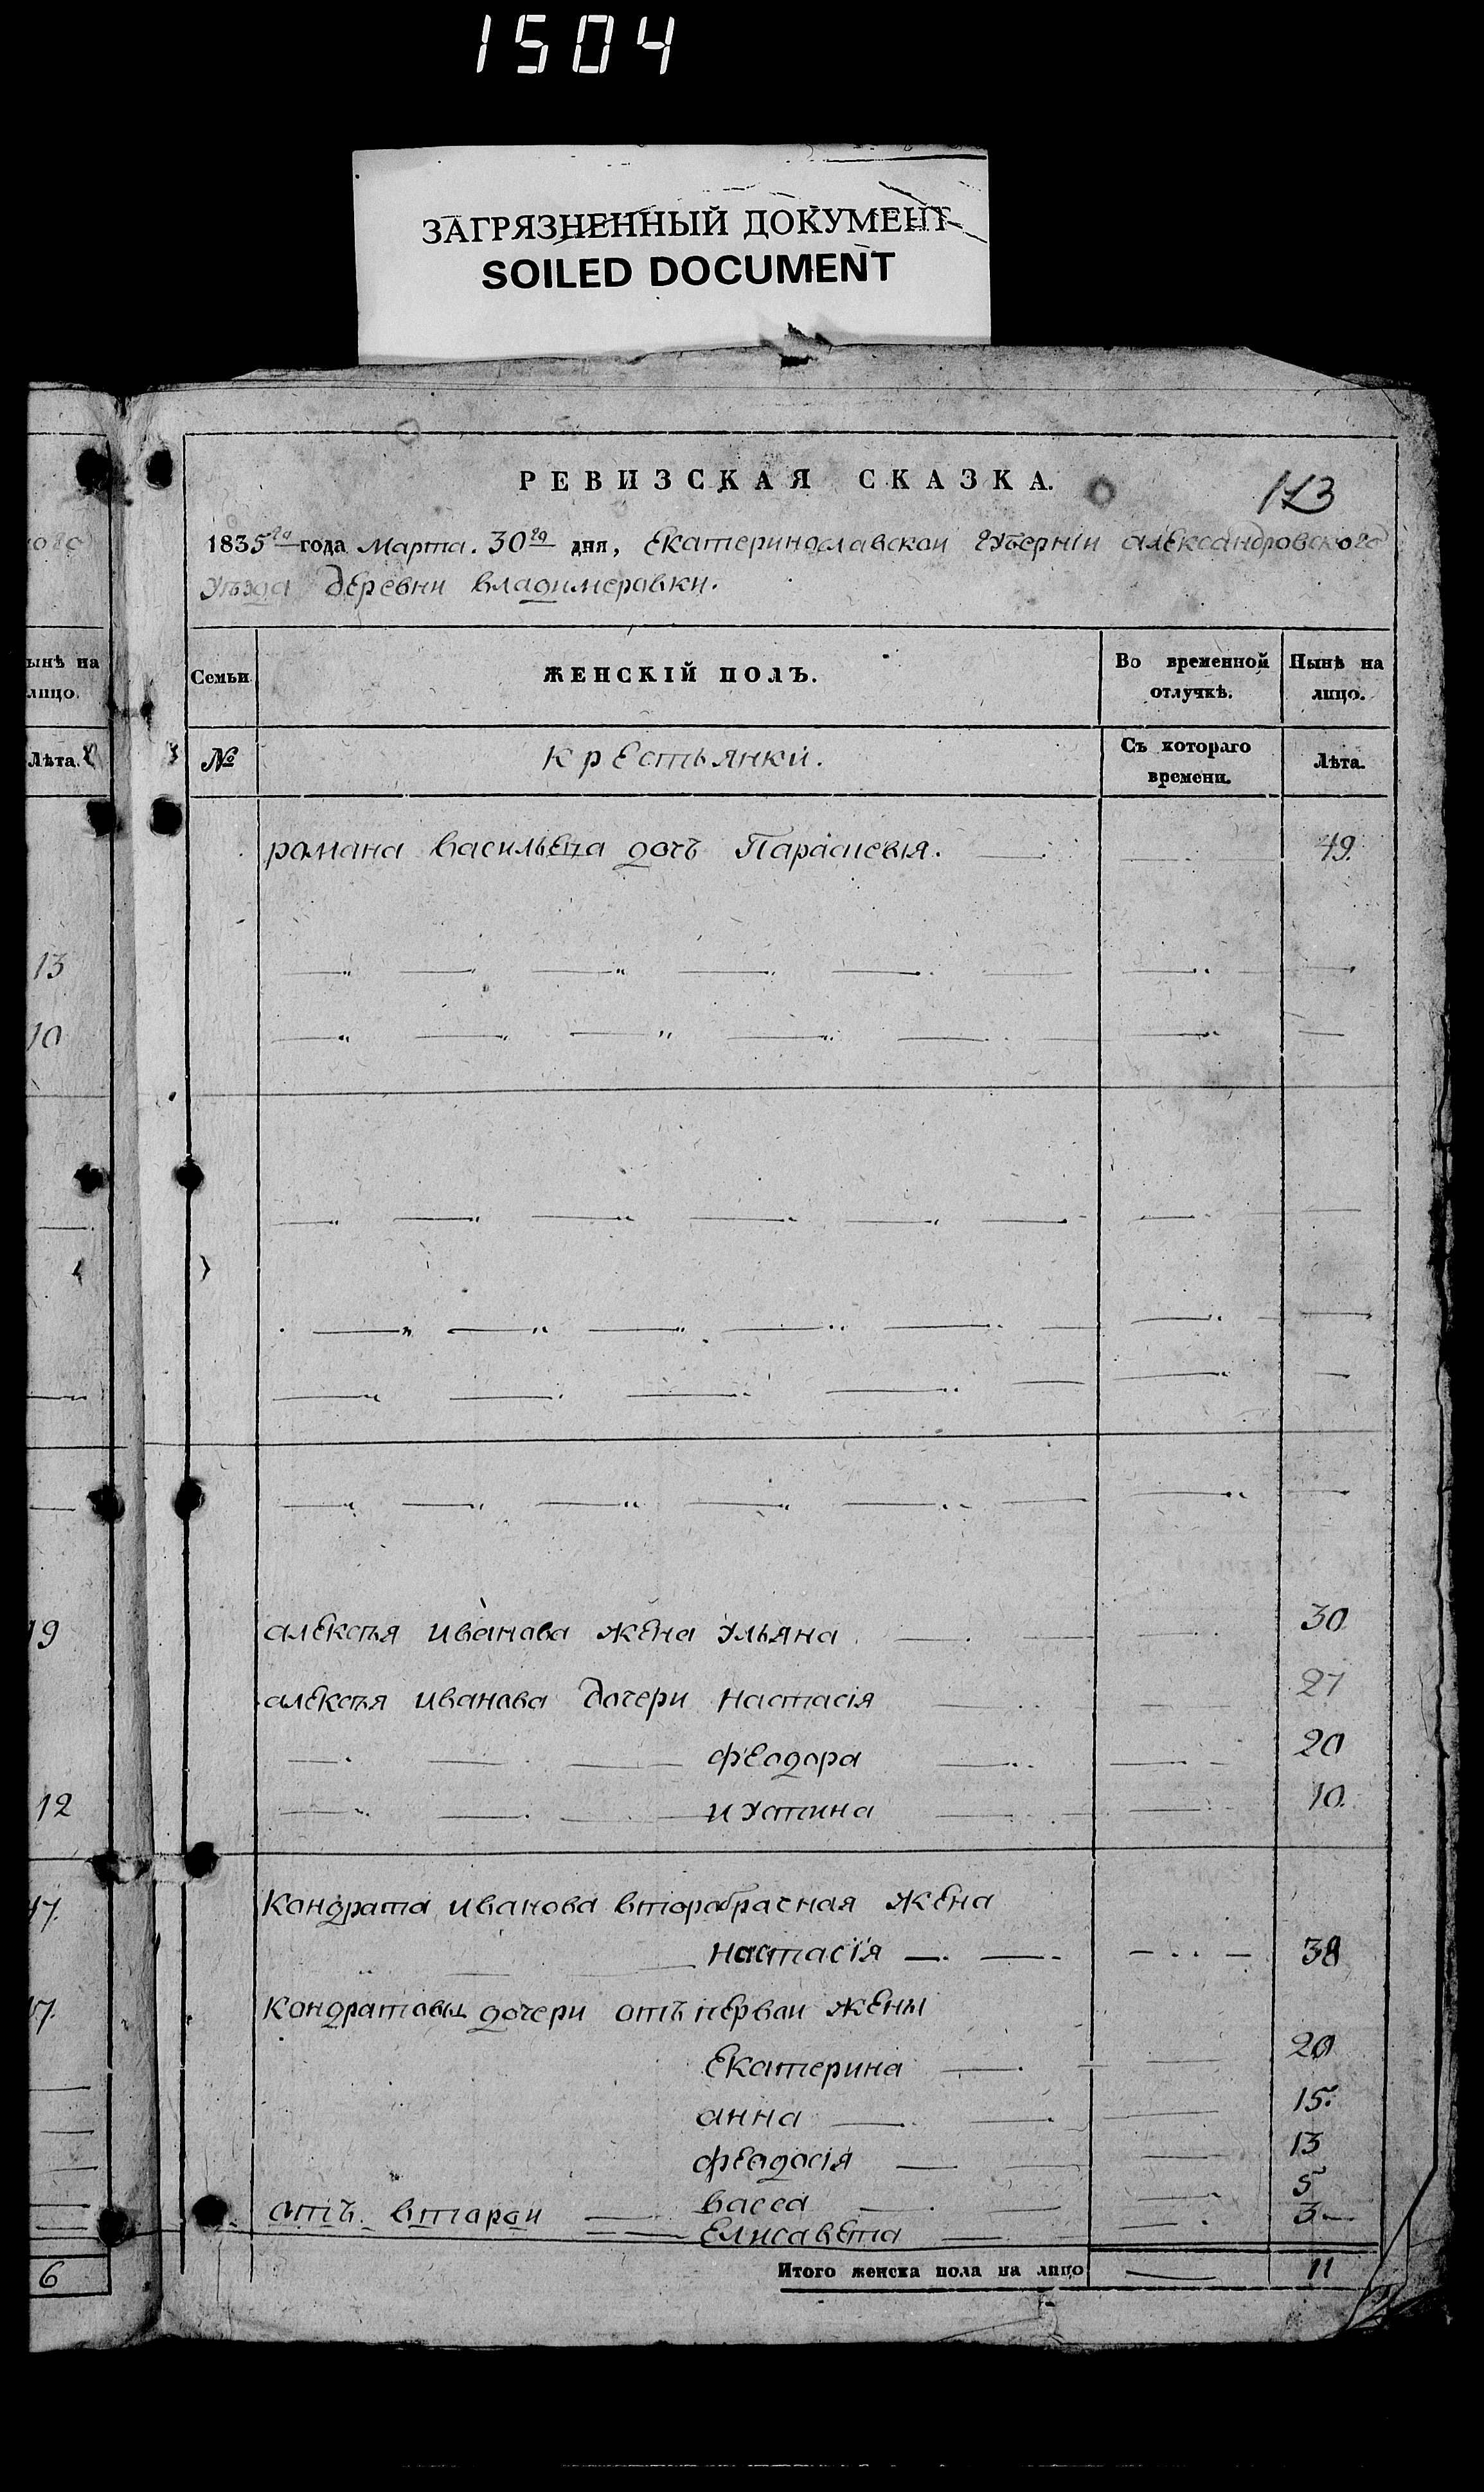 1504
ЗАГРЯЗНЕННЫЙ ДОКУМЕНТ
SOILED DOCUMENT
РЕВИЗСКАЯ СКАЗКА.
113
1835го года Марта. 30го дня, Екатеринославской Губерніи александровского
уѣзда деревни владимеровки.
ынѣ на
лицо.
Семьи
ЖЕНСКІЙ ПОЛЪ.
Во временной
отлучкѣ.
Нынѣ на
лицо.
Лѣта.
№
крестьянки.
Съ котораго
времени.
Лѣта.
романа васильева дочь Параскевія. 49.
13
10
19
алексѣя иванова жена ульяна 30
алексѣя иванова дочери настасія 21
феодора 20
12
иустина 10.
47.
Кондрата иванова вторабрачная жена
настасія 38
17.
кондратовы дочери отъ первой жены
Екатерина 20
анна 15.
феодосія 13
отъ второй васса 5
Елисавета 3
6
Итого женска пола на лицо 11